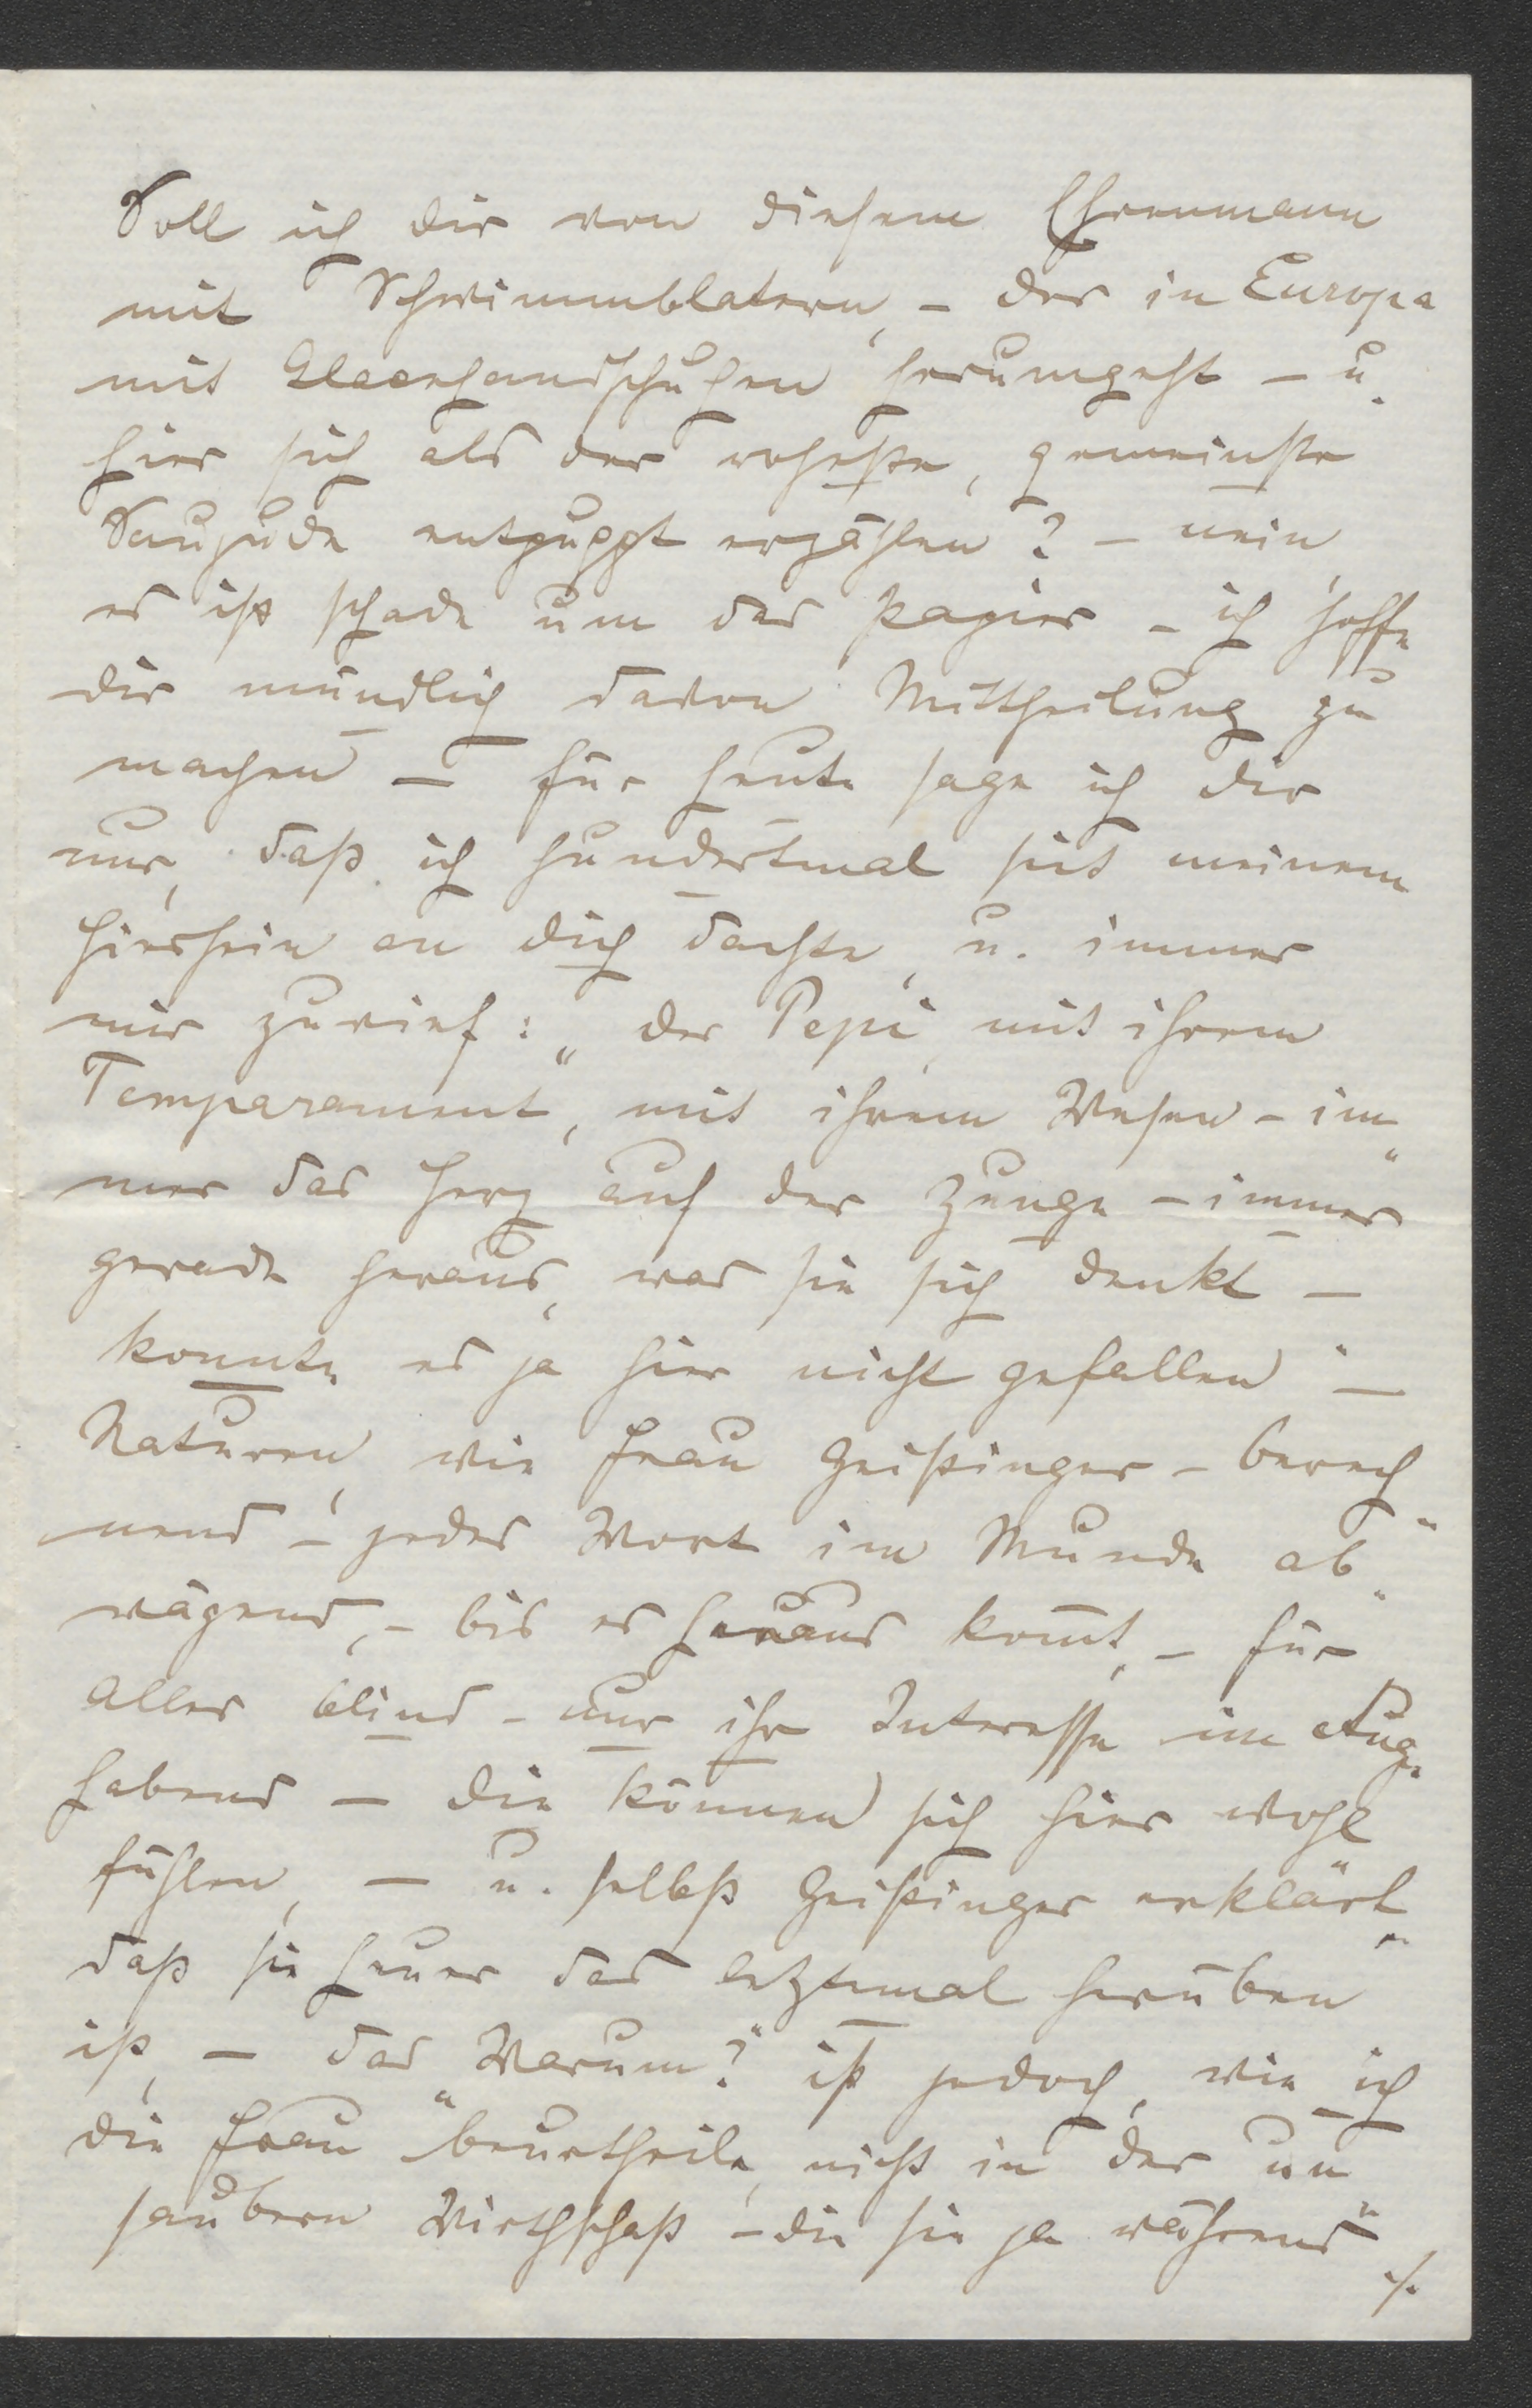 Soll ich dir von diesem Ehrenmann
mit Schwimmblatern, – der in Europa
mit Glacehandschuhen herumgeht – u.
hier sich als der roheste, gemeinste
Saujude entpuppt erzählen? – nein,
es ist schade um das Papier – ich hoffe
dir mündlich davon Mittheilung zu
machen – für heute sage ich dir
nur, daß ich hundertmal seit meinem
Hiersein an dich dachte, u. immer
mir zurief: „der Pepi, mit ihrem
Temparament, mit ihrem Wesen – im„
mer das Herz auf der Zunge – immer
gerade heraus, was sie sich denkt –
konnte es ja hier nicht gefallen –
Naturen, wie Frau Geistinger – berech„
nend – jedes Wort im Munde ab„
wägend, – bis es heraus kom̄t, – für
alles blind – nur ihr Interesse im Auge
habend – die können sich hier wohl
fühlen, – u. selbst Geistinger erklärt„
daß sie heuer das letztemal herüben
ist, – das „Warum?“ ist jedoch, wie ich
die Frau beurtheile, nicht in der un„
saubern Wirthschaft – die sie ja während
./.